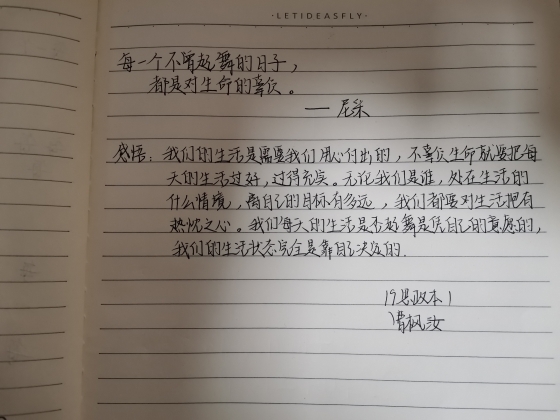 ·LETIDEASFLY·
每一个不曾起舞的日子，
都是对生命的辜负。
—— 尼采
感悟：我们的生活是需要我们用心付出的，不辜负生命就要把每
天的生活过好，过得充实。无论我们是谁，处在生活的
什么情境，离自己的目标有多远，我们都要对生活抱有
热忱之心。我们每天的生活是否起舞是凭自己的意愿的，
我们的生活状态完全是靠自己决定的.
19思政本1
枫汝